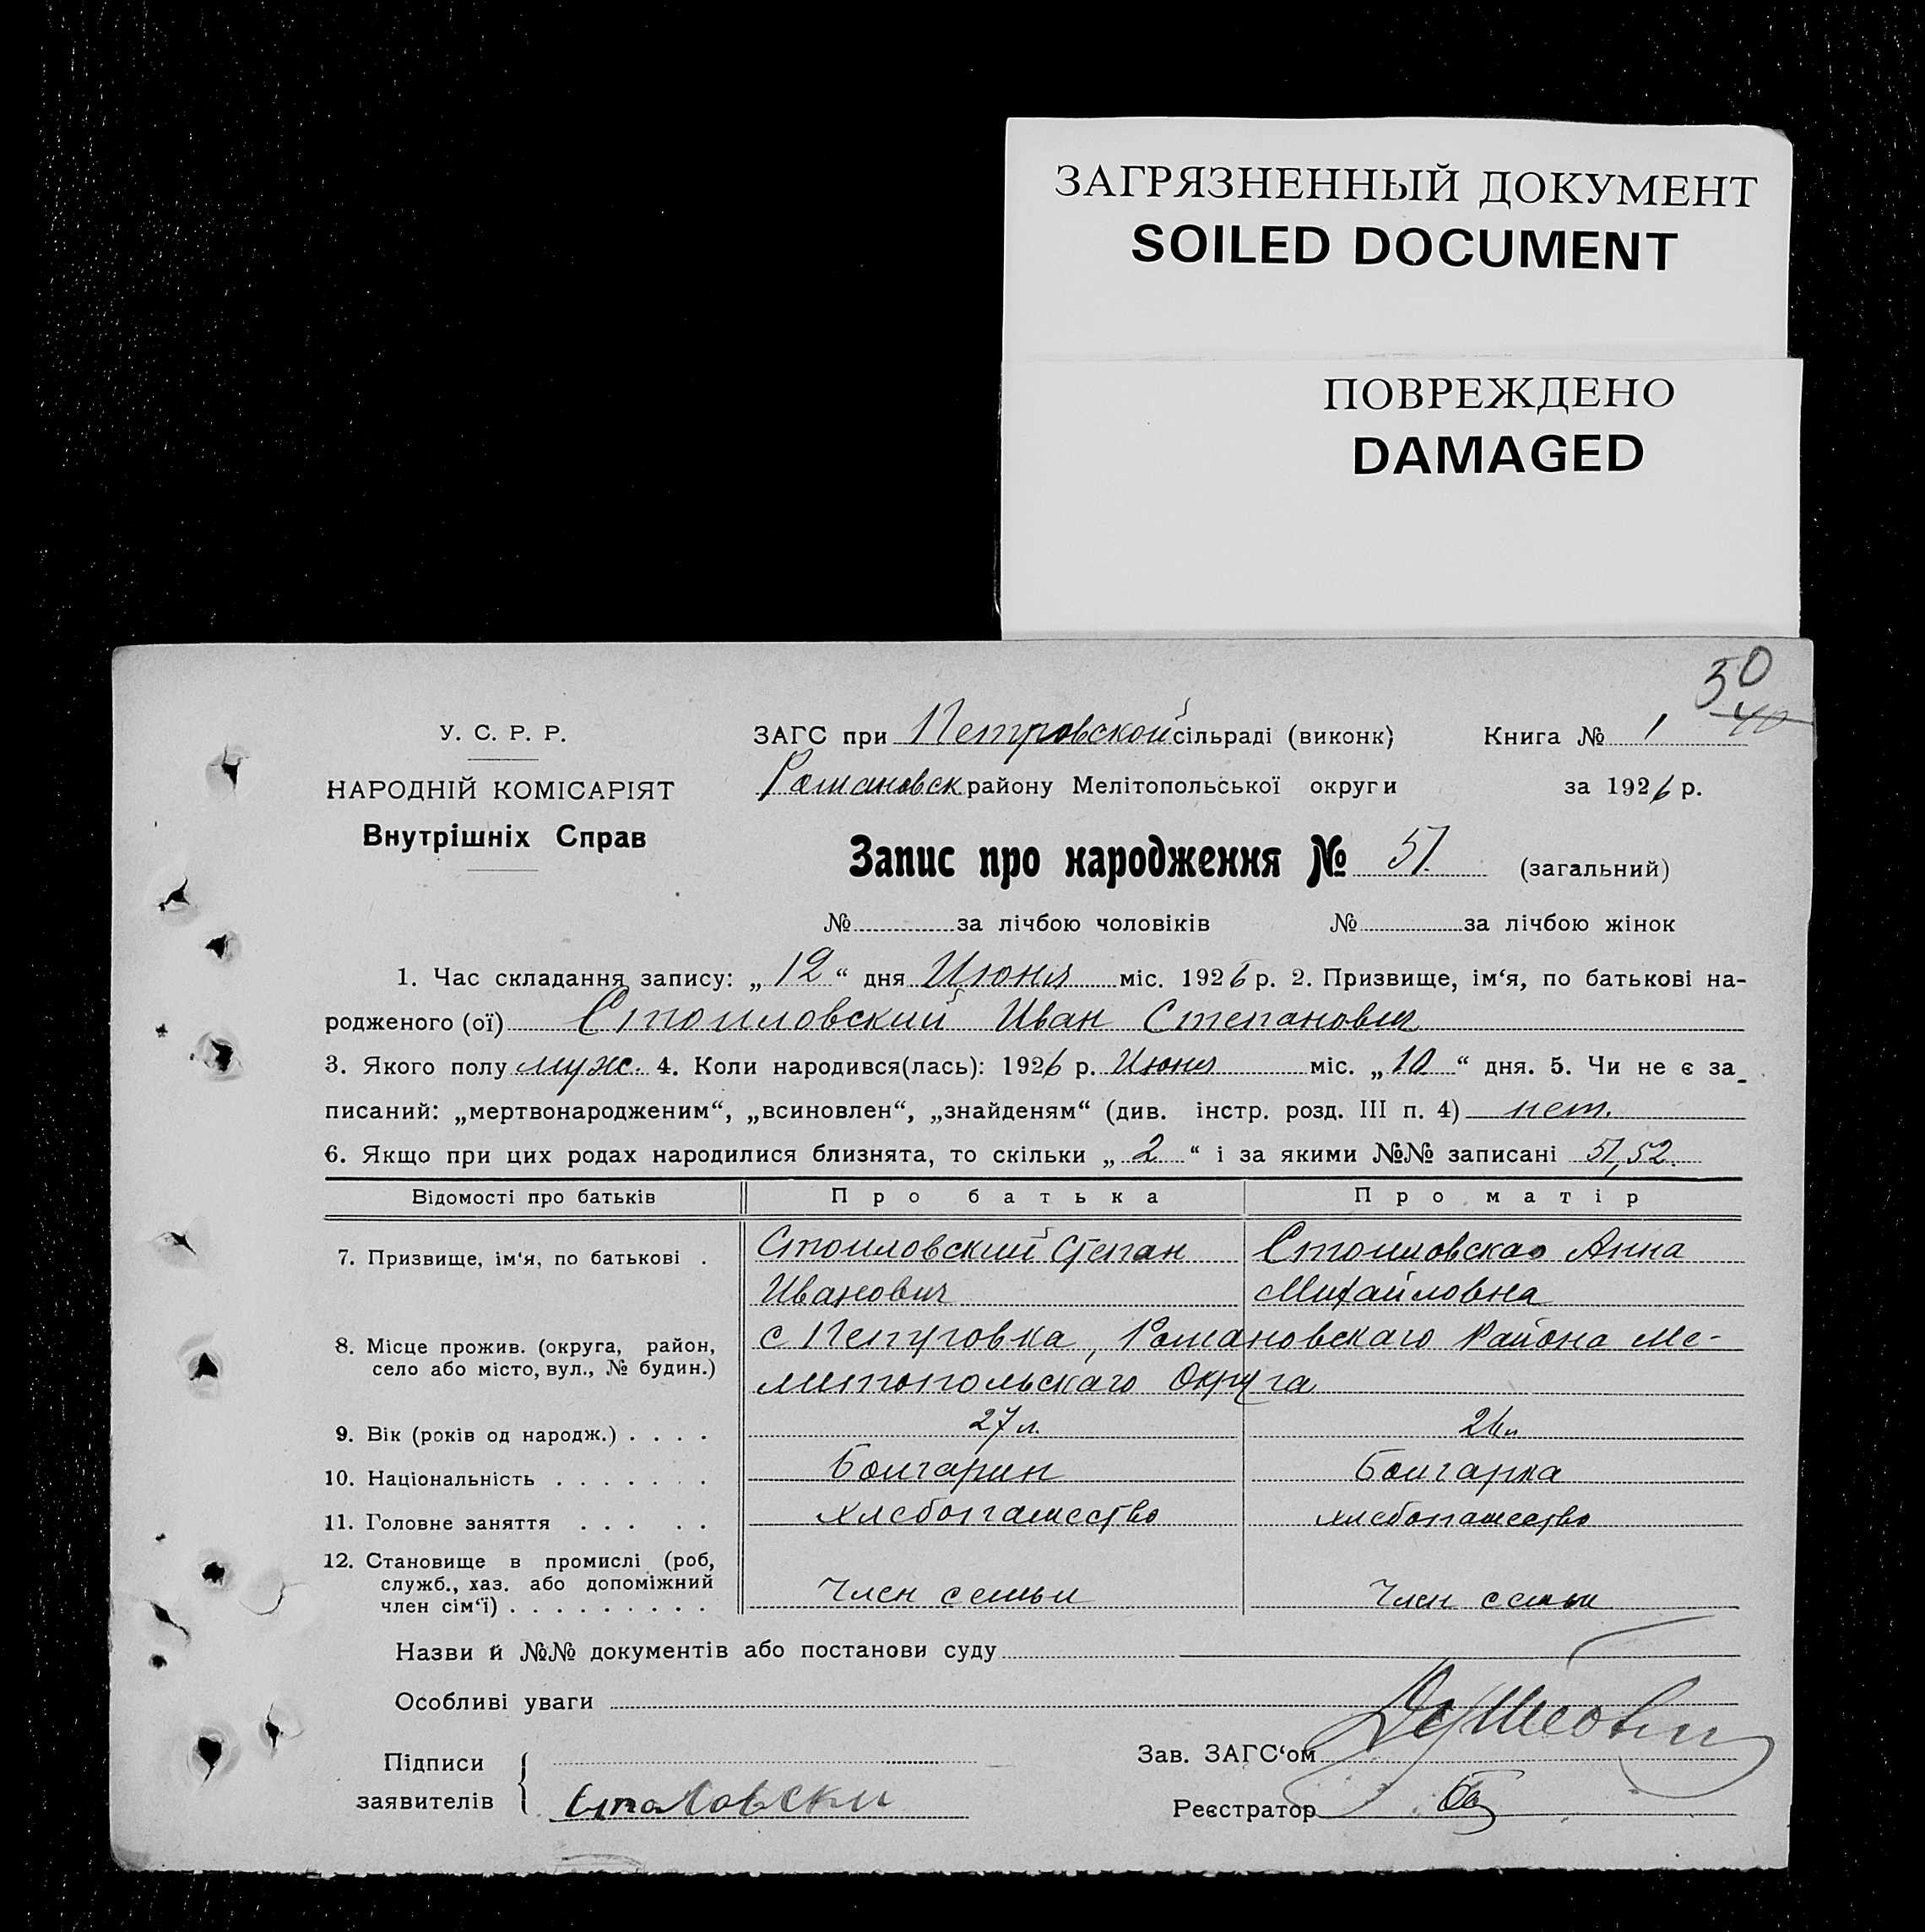 ЗАГРЯЗНЕННЫЙ ДОКУМЕНТ
SOILED DOCUMENT
ПОВРЕЖДЕНО
DAMAGED
50
40
У. С. Р. Р.
НАРОДНІЙ КОМІСАРІЯТ
Внутрішніх Справ
ЗАГС при Петровской сільраді (виконк) Книга № 1
Романовск району Мелітопольської округи за 1926 р.
Запис про народження № 51. (загальний)
№ за лічбою чоловіків № за лічбою жінок
1. Час складання запису: „12“ дня Июня міс. 1926 р. 2. Призвище, ім‘я, по батькові на-
родженого (ої) Стоиловский Иван Степанович
3. Якого полу муж. 4. Коли народився(лась): 1926 р. Июня міс. „10“ дня. 5. Чи не є за-
писаний: „мертвонародженим“, „всиновлен“, „знайденям“ (див. інстр. розд. III п. 4) нет.
6. Якщо при цих родах народилися близнята, то скільки „2“ і за якими №№ записані 51,52.
Відомості про батьків Про батька Про матір
7. Призвище, ім‘я, по батькові . Стоиловский Степан Стоиловская Анна
Иванович Михайловна
8. Місце прожив. (округа, район, с Петровка, Романовскаго Района Ме-
село або місто, вул., № будин.) литопольскаго Округа
9. Вік (років од народж.) . . . . 27 л. 26 л
10. Національність . . . . . . . Болгарин Болгарка
11. Головне заняття . . . . . хлебопашество хлебопашество
12. Становище в промислі (роб,
служб., хаз. або допоміжний
член сім‘ї) . . . . . . . . . Член семьи Член семьи
Назви й №№ документів або постанови суду
Особливі уваги
Підписи Зав. ЗАГС‘ом
заявителів Столовски Реєстратор